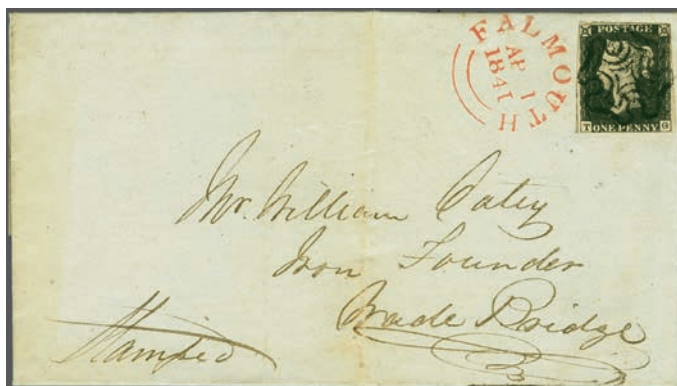 FALMOUTH
AP 1
1841
POSTAGE
T ONE PENNY G
Mr. William Catey
Iron Founder
Wade Bridge
Stamped